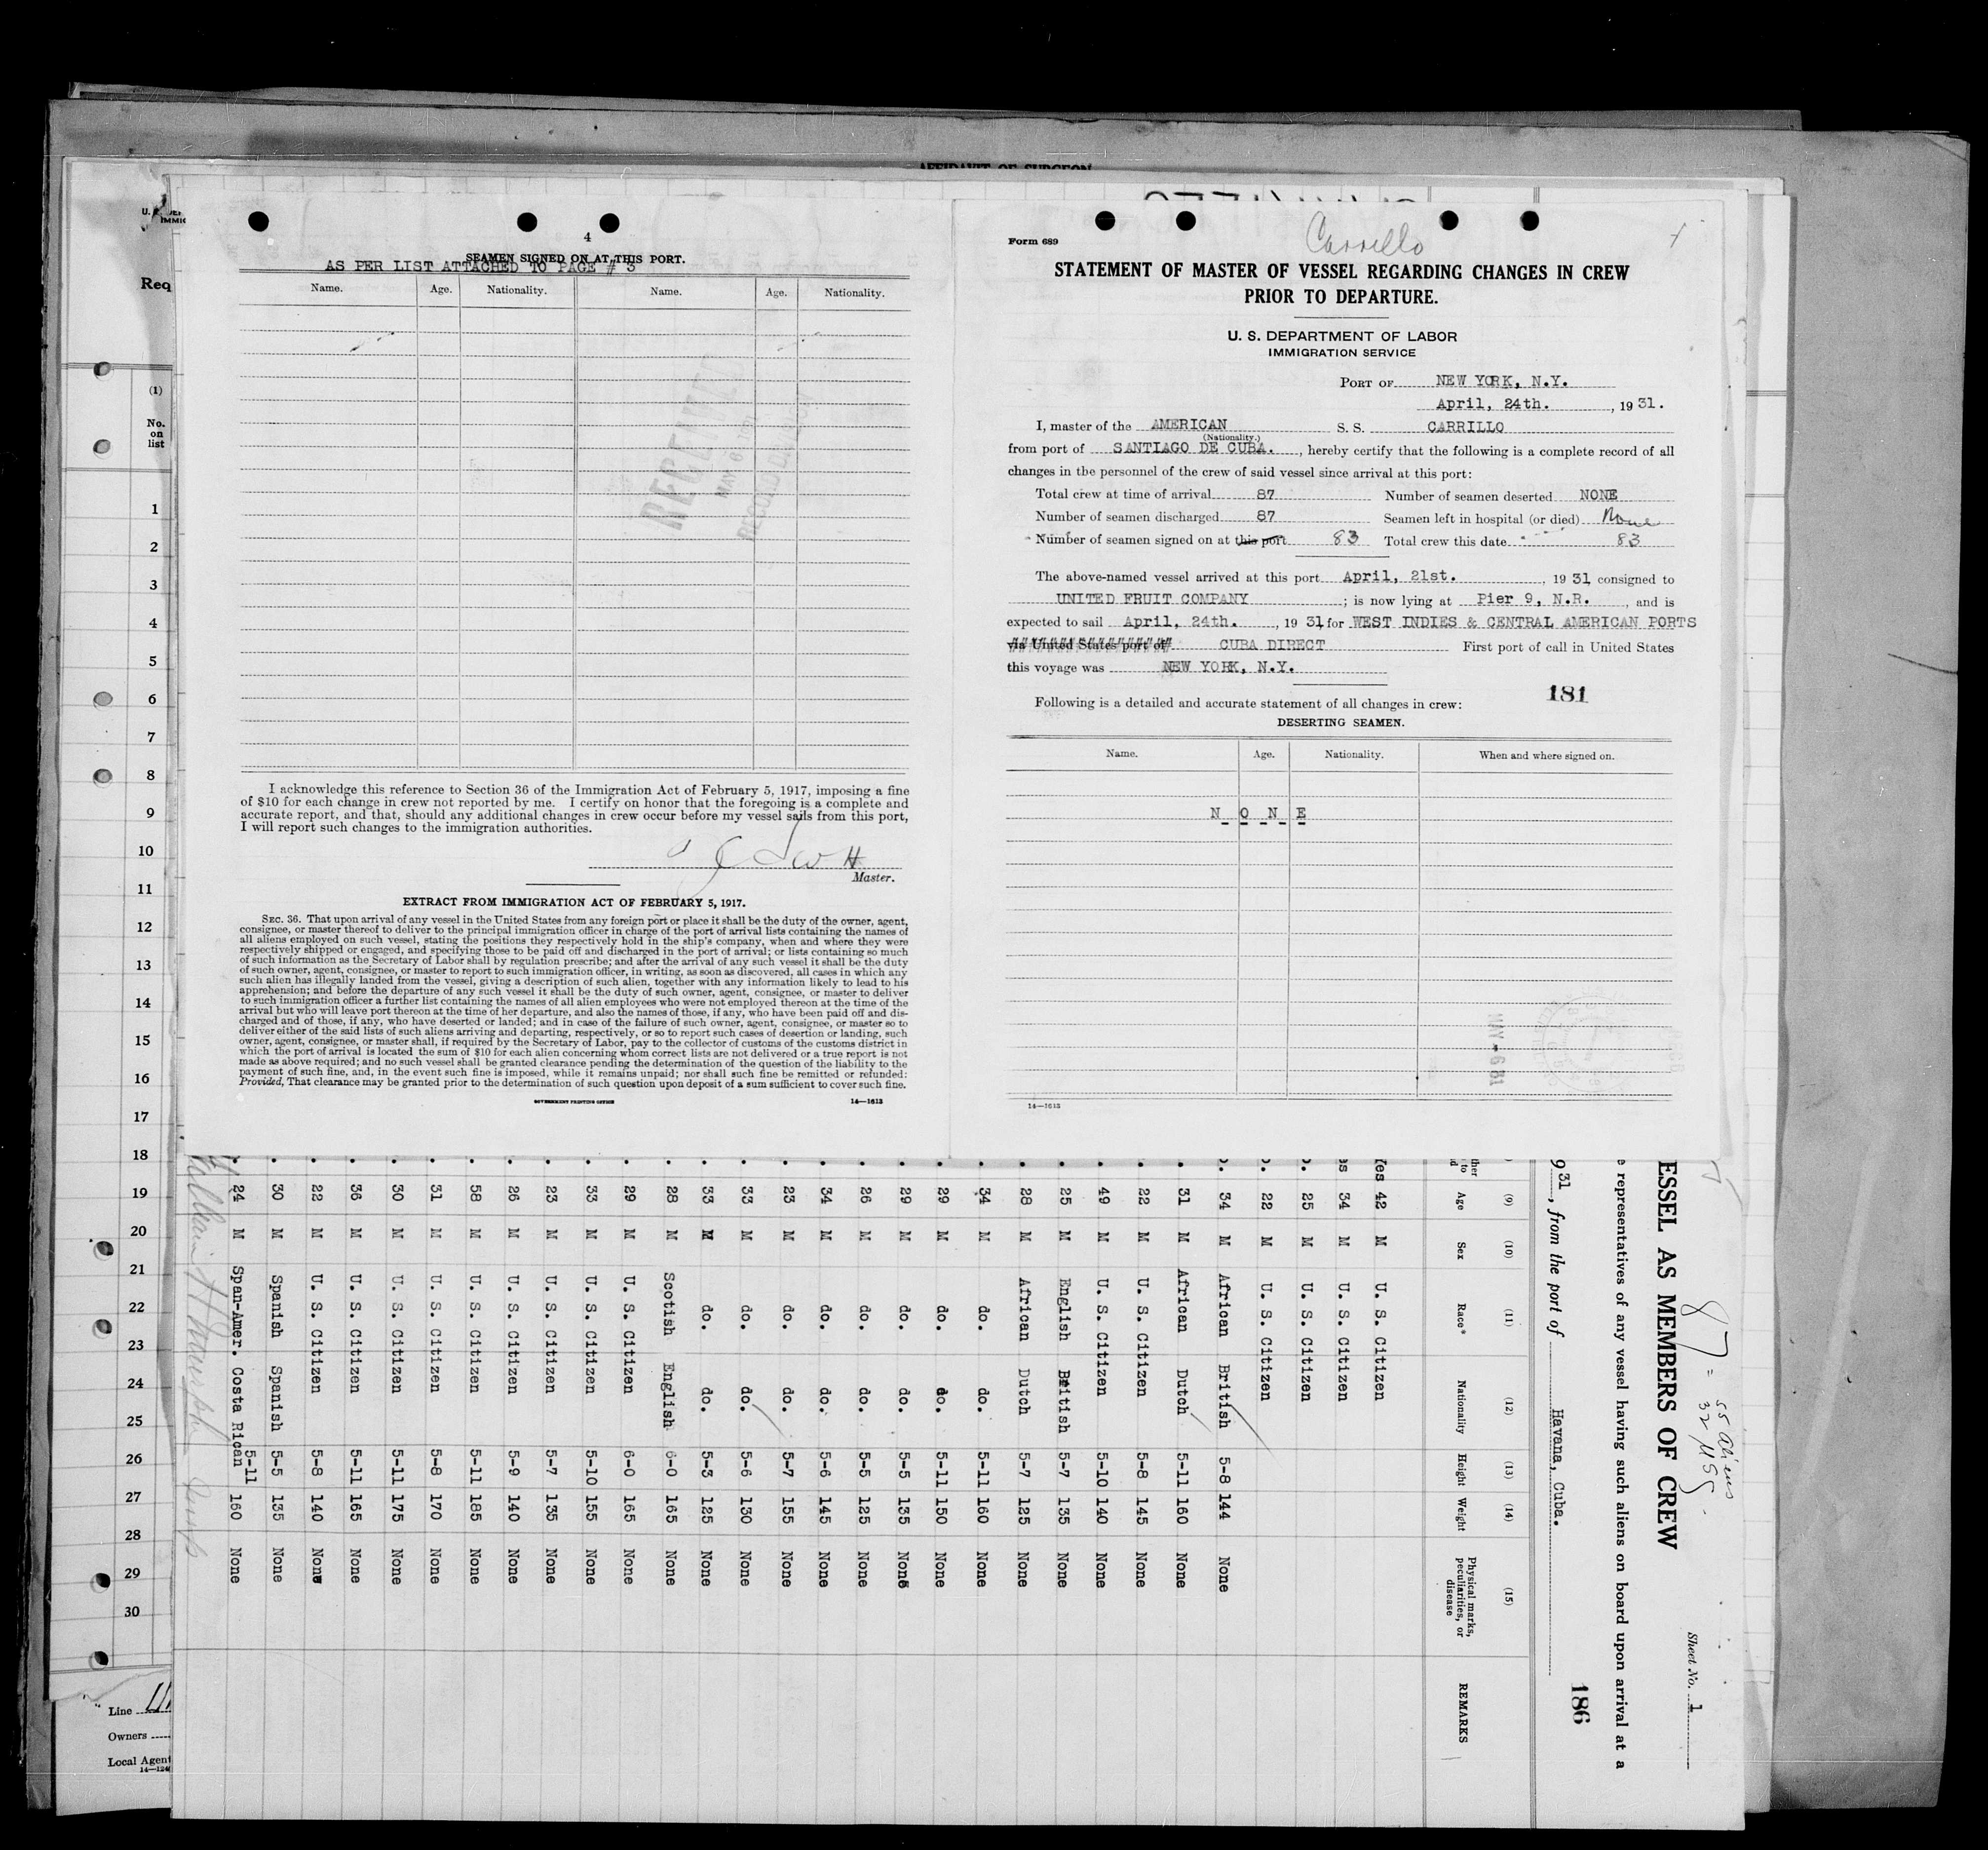 AFFIDAVIT OF SURGEON
4
SEAMEN SIGNED ON AT THIS PORT.
AS PER LIST ATTACHED TO PAGE # 3
Name. Age. Nationality. Name. Age. Nationality.
RECEIVED
I acknowledge this reference to Section 36 of the Immigration Act of February 5, 1917, imposing a fine
of $10 for each change in crew not reported by me. I certify on honor that the foregoing is a complete and
accurate report, and that, should any additional changes in crew occur before my vessel sails from this port,
I will report such changes to the immigration authorities.
Master.
EXTRACT FROM IMMIGRATION ACT OF FEBRUARY 5, 1917.
SEC. 36. That upon arrival of any vessel in the United States from any foreign port or place it shall be the duty of the owner, agent,
consignee, or master thereof to deliver to the principal immigration officer in charge of the port of arrival lists containing the names of
all aliens employed on such vessel, stating the positions they respectively hold in the ship's company, when and where they were
respectively shipped or engaged, and specifying those to be paid off and discharged in the port of arrival; or lists containing so much
of such information as the Secretary of Labor shall by regulation prescribe; and after the arrival of any such vessel it shall be the duty
of such owner, agent, consignee, or master to report to such immigration officer, in writing, as soon as discovered, all cases in which any
such alien has illegally landed from the vessel, giving a description of such alien, together with any information likely to lead to his
apprehension; and before the departure of any such vessel it shall be the duty of such owner, agent, consignee, or master to deliver
to such immigration officer a further list containing the names of all alien employees who were not employed thereon at the time of the
arrival but who will leave port thereon at the time of her departure, and also the names of those, if any, who have been paid off and dis-
charged and of those, if any, who have deserted or landed; and in case of the failure of such owner, agent, consignee, or master so to
deliver either of the said lists of such aliens arriving and departing, respectively, or so to report such cases of desertion or landing, such
owner, agent, consignee, or master shall, if required by the Secretary of Labor, pay to the collector of customs of the customs district in
which the port of arrival is located the sum of $10 for each alien concerning whom correct lists are not delivered or a true report is not
made as above required; and no such vessel shall be granted clearance pending the determination of the question of the liability to the
payment of such fine, and, in the event such fine is imposed, while it remains unpaid; nor shall such fine be remitted or refunded:
Provided, That clearance may be granted prior to the determination of such question upon deposit of a sum sufficient to cover such fine.
GOVERNMENT PRINTING OFFICE 14—1613
Form 689
Carrillo
STATEMENT OF MASTER OF VESSEL REGARDING CHANGES IN CREW
PRIOR TO DEPARTURE.
U. S. DEPARTMENT OF LABOR
IMMIGRATION SERVICE
PORT OF NEW YORK, N.Y.
April, 24th. , 19 31.
I, master of the AMERICAN S. S. CARRILLO
(Nationality.)
from port of SANTIAGO DE CUBA. , hereby certify that the following is a complete record of all
changes in the personnel of the crew of said vessel since arrival at this port:
Total crew at time of arrival 87 Number of seamen deserted NONE
Number of seamen discharged 87 Seamen left in hospital (or died) None
Number of seamen signed on at this port 83 Total crew this date 83
The above-named vessel arrived at this port April, 21st. , 19 31, consigned to
UNITED FRUIT COMPANY ; is now lying at Pier 9, N.R. , and is
expected to sail April, 24th. , 19 31, for WEST INDIES & CENTRAL AMERICAN PORTS
via United States port of CUBA DIRECT First port of call in United States
this voyage was NEW YORK, N.Y.
181
Following is a detailed and accurate statement of all changes in crew:
DESERTING SEAMEN.
Name. Age. Nationality. When and where signed on.
N O N E
MAY - 6 31
14—1613
Req
(1)
No.
on
list
1
2
3
4
5
6
7
8
9
10
11
12
13
14
15
16
17
18
19
20
21
22
23
24
25
26
27
28
29
30
Line
Owners
Local Agent
Sheet No. 1
ESSEL AS MEMBERS OF CREW
87 = 55 Aliens
32 USS
e representatives of any vessel having such aliens on board upon arrival at a
931, from the port of Havana, Cuba.
186
(9) (10) (11) (12) (13) (14) (15)
Age Sex Race* Nationality Height Weight Physical marks, peculiarities, or disease REMARKS
Yes 42 M U. S. Citizen
34 M U. S. Citizen
25 M U. S. Citizen
22 M U. S. Citizen
34 M African British 5-8 144 None
31 M African Dutch 5-11 160 None
22 M U. S. Citizen 5-8 145 None
49 M U. S. Citizen 5-10 140 None
25 M English British 5-7 135 None
28 M African Dutch 5-7 125 None
34 M do. do. 5-11 160 None
29 M do. do. 5-11 150 None
29 M do. do. 5-5 135 None
26 M do. do. 5-5 125 None
34 M do. do. 5-6 145 None
23 M do. do. 5-7 155 None
33 M do. do. 5-6 130 None
33 M do. do. 5-3 125 None
28 M Scotish English 6-0 165 None
29 M U. S. Citizen 6-0 165 None
33 M U. S. Citizen 5-10 155 None
23 M U. S. Citizen 5-7 135 None
26 M U. S. Citizen 5-9 140 None
58 M U. S. Citizen 5-11 185 None
31 M U. S. Citizen 5-8 170 None
30 M U. S. Citizen 5-11 175 None
36 M U. S. Citizen 5-11 165 None
22 M U. S. Citizen 5-8 140 None
30 M Spanish Spanish 5-5 135 None
24 M Span-Amer. Costa Rican 5-11 160 None